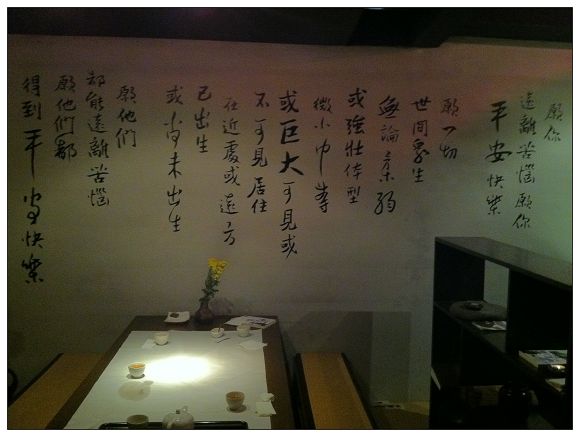 願你
遠離苦惱願你
平安快樂
願一切
世間眾生
無論柔弱
或強壯体型
微小中等
或巨大可見或
不可見居住
在近處或遠方
已出生
或尚未出生
願他們
都能遠離苦惱
願他們都
得到平安快樂